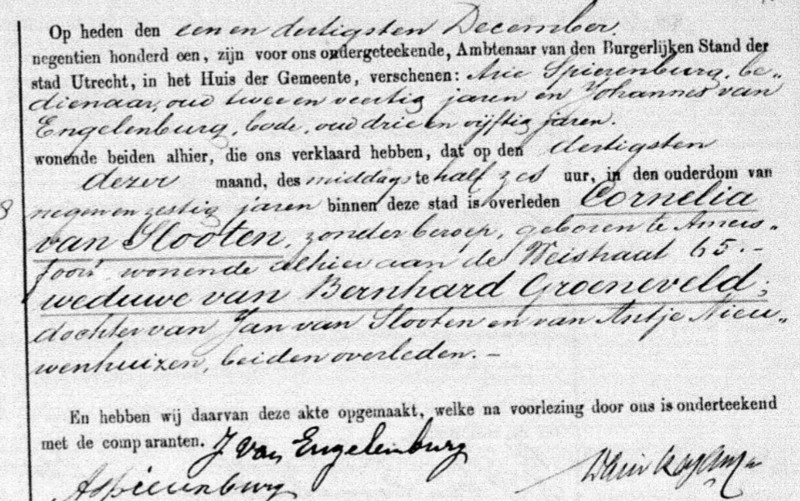 Op heden den een en dertigsten December.
negentien honderd een, zijn voor ons ondergeteekende, Ambtenaar van den Burgerlijken Stand der
stad Utrecht, in het Huis der Gemeente, verschenen: Arie Spierenburg, be-
dienaar, oud twee en veertig jaren en Johannes van
Engelenburg, bode, oud drie en vijftig jaren.
wonende beiden alhier, die ons verklaard hebben, dat op den dertigsten
dezer maand, des middags te half zes uur, in den ouderdom van
8 negen en zestig jaren binnen deze stad is overleden Cornelia
van Slooten, zonder beroep, geboren te Amers-
foort wonende alhier aan de Weistraat 65.-
weduwe van Bernhard Groeneveld,
dochter van Jan van Slooten en van Antje Nieu-
wenhuizen, beiden overleden. -
En hebben wij daarvan deze akte opgemaakt, welke na voorlezing door ons is onderteekend
met de comparanten. J van Engelenburg
A Spierenburg